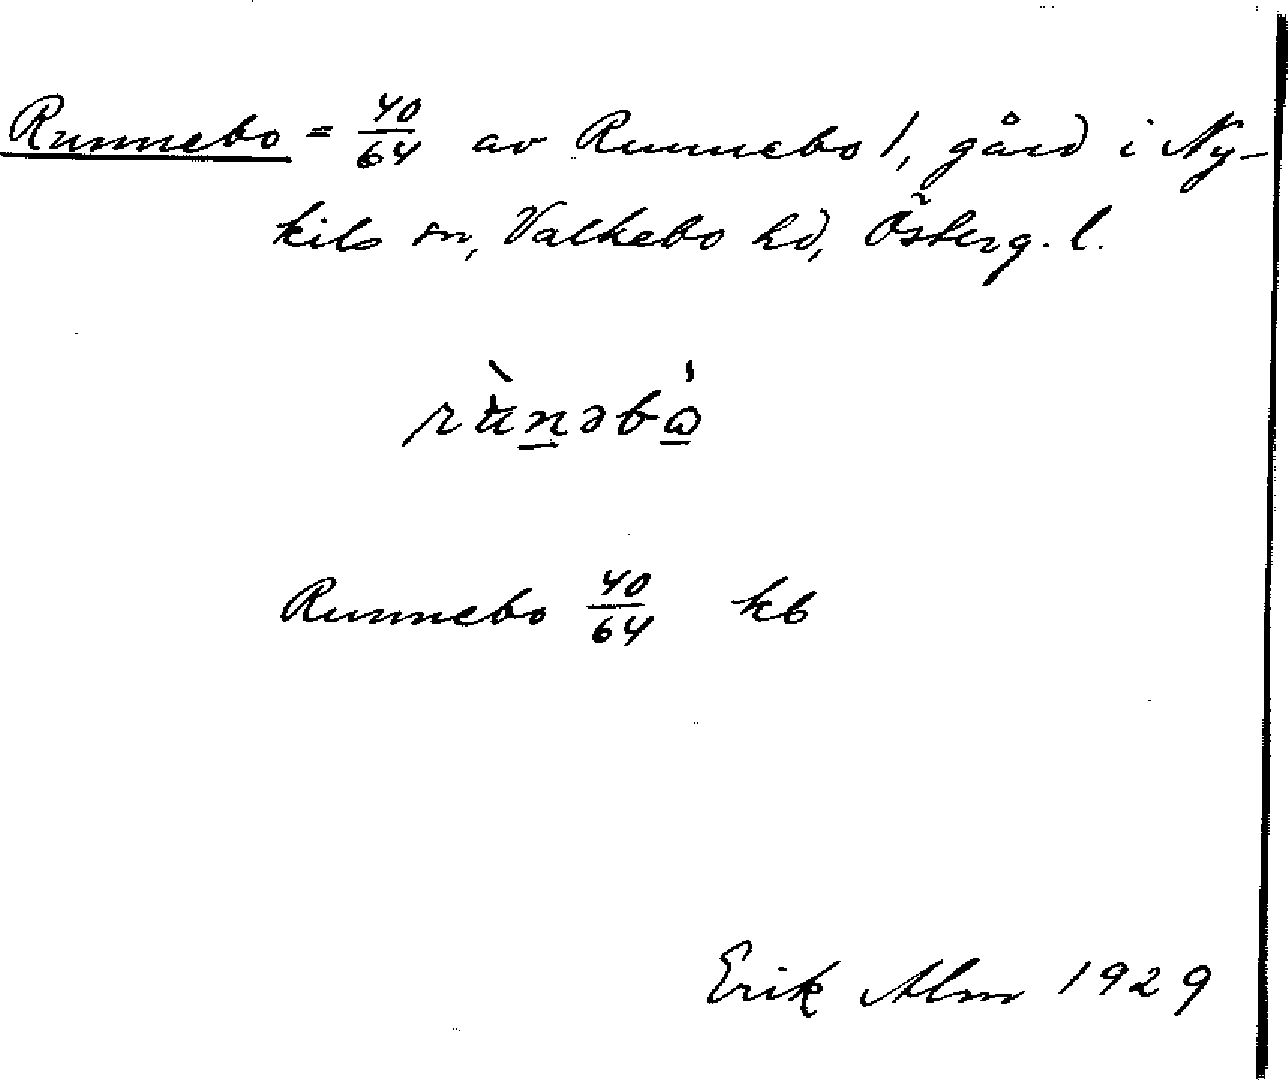 Runnebo = 40/64 av Runnebo 1, gård i Ny-
kils sn, Valkebo hd, Österg. l.
rùnəbὼ
Runnebo 40/64 kb
Erik Alm 1929